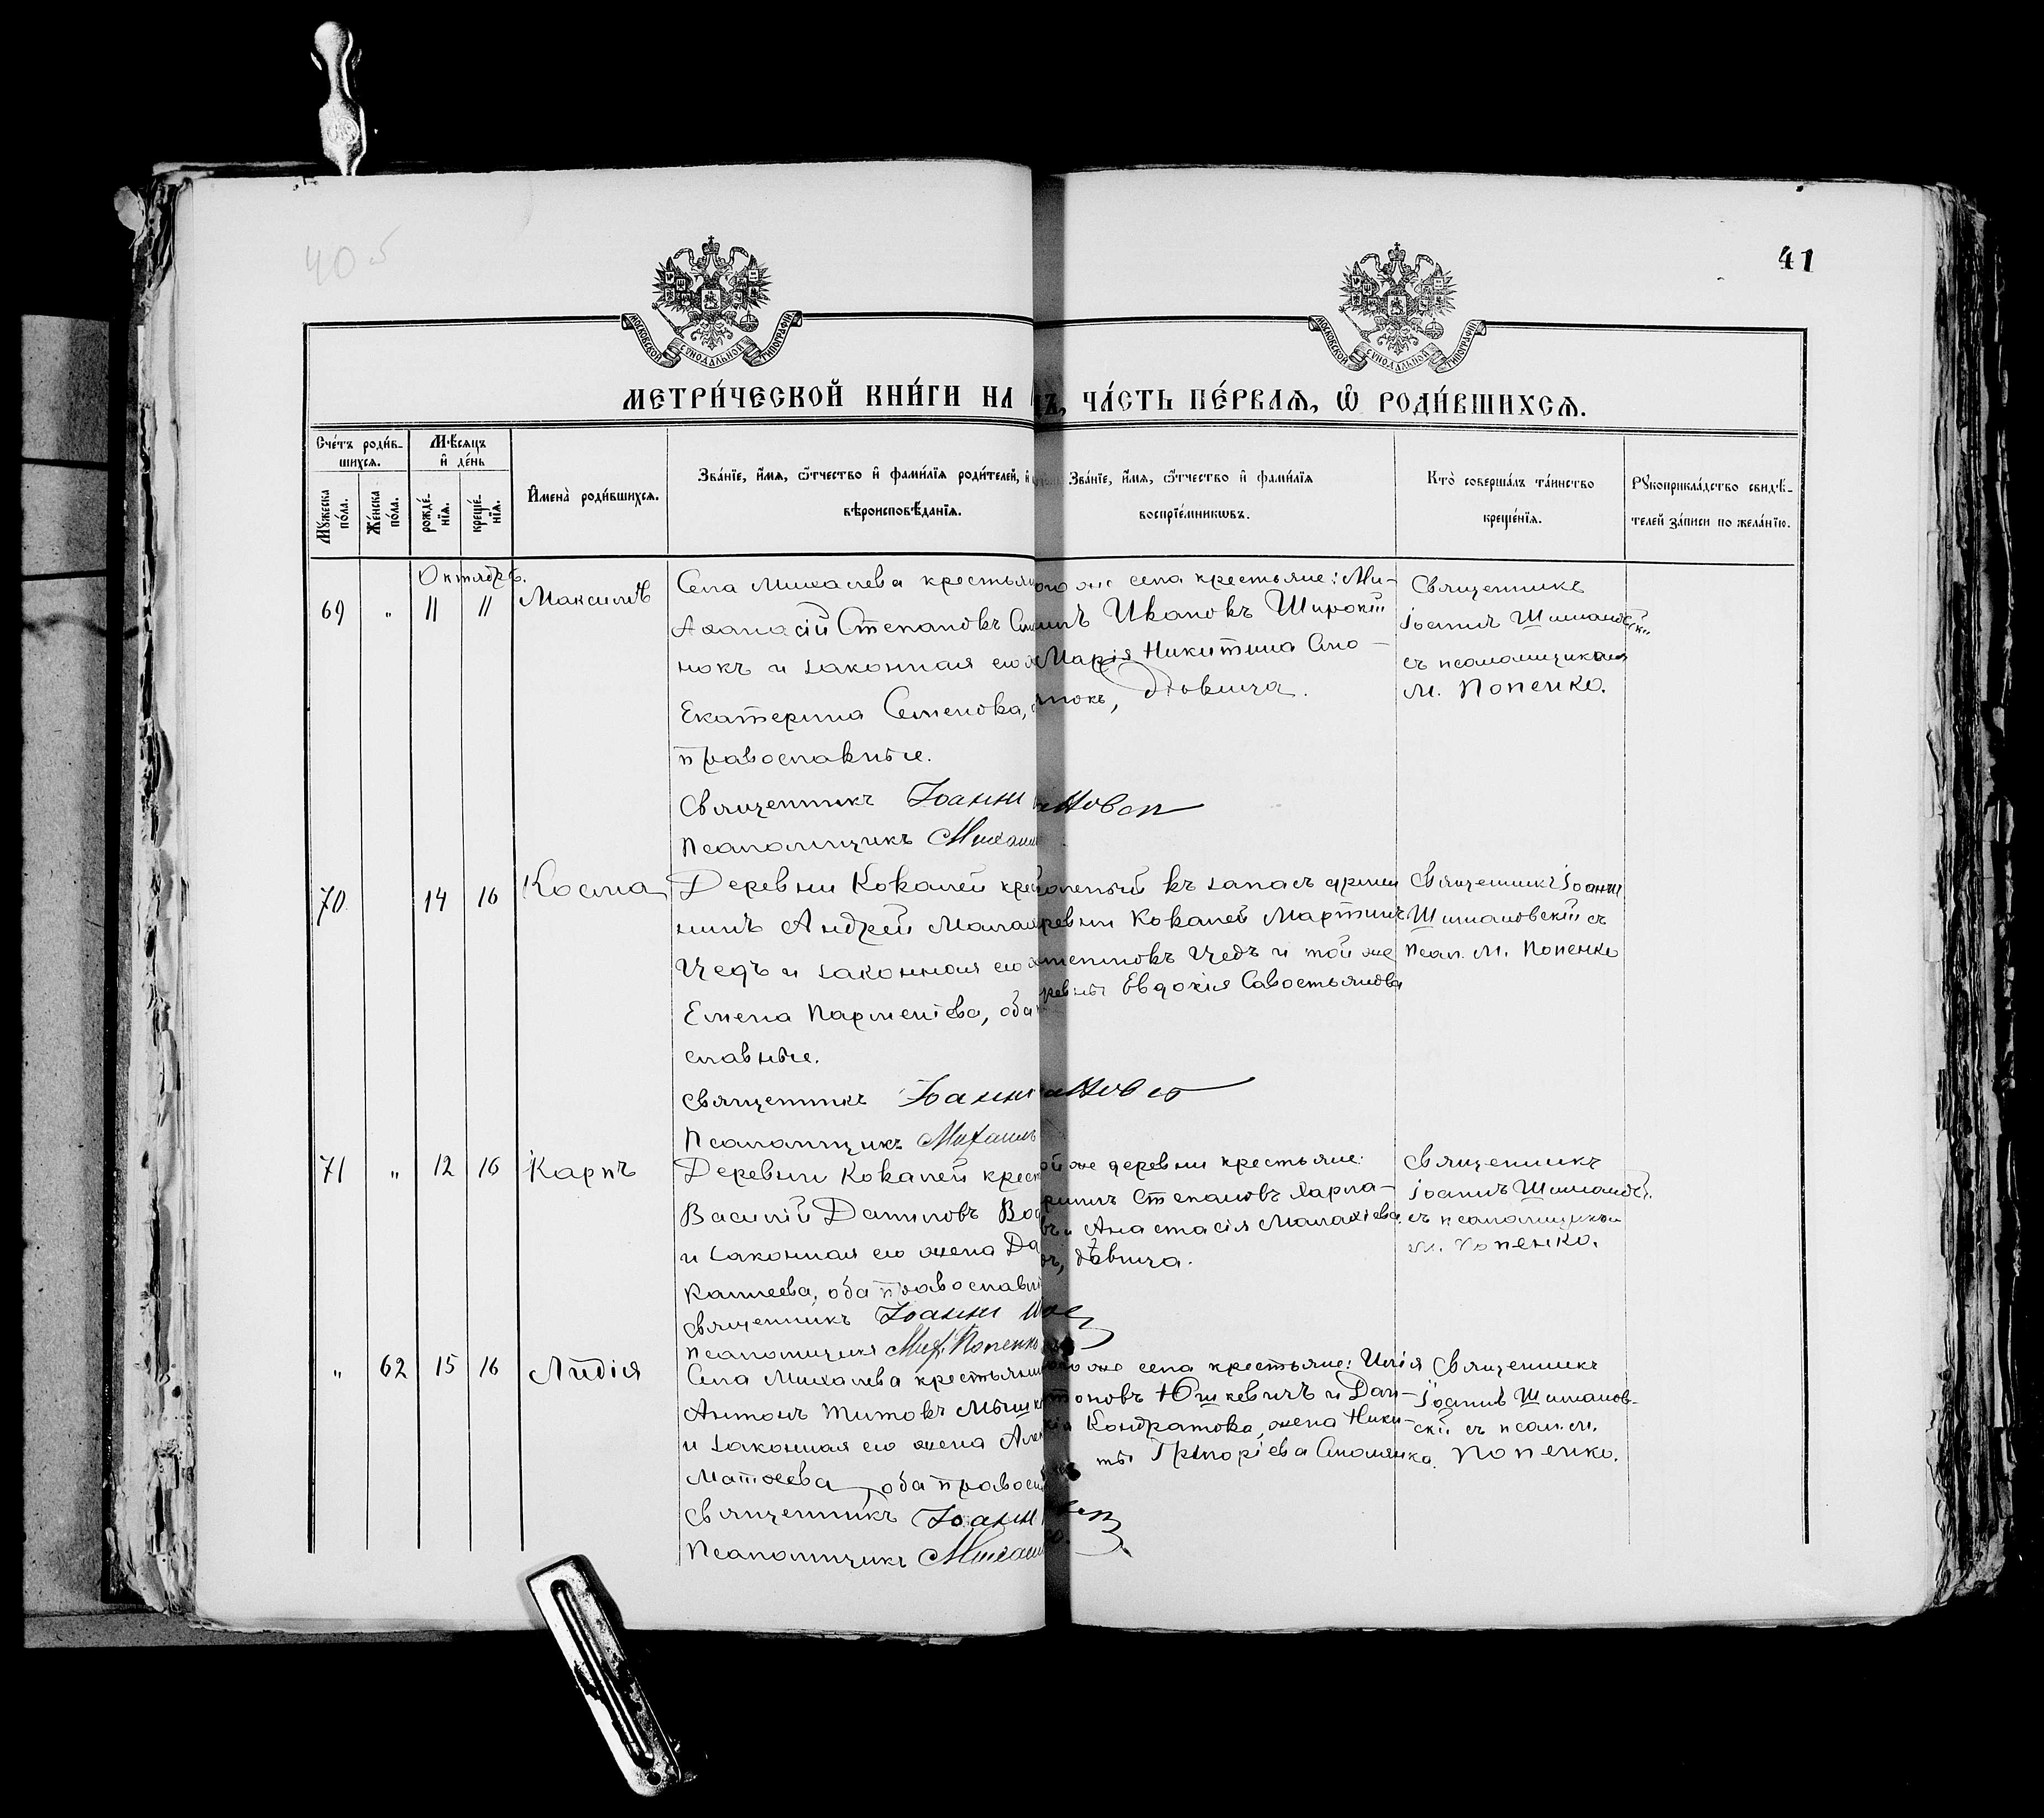 40 б
41
МОСКОВСКОЙ СѴНОДАЛЬНОЙ ТИПОГРАФІИ
МОСКОВСКОЙ СѴНОДАЛЬНОЙ ТИПОГРАФІИ
МЕТРИ́ЧЕСКОЙ КНИ́ГИ НА
ЧА́СТЬ ПЕ́РВАѦ, Ѿ РОДИ́ВШИХСѦ.
Сче́тъ роди́вшихся.
Мѣ́сяцъ и҆ де́нь
Мꙋ́жеска по́ла.
Же́нска по́ла.
рожде́нїя.
креще́нїя.
И҆мена̀ роди́вшихся.
Зва́нїе, и҆́мя, ѻ҆́тчество и҆ фами́лїя роди́телей, и҆
вѣроисповѣ́данїя.
Зва́нїе, и҆́мя, ѻ҆́тчество и҆ фами́лїя
воспрїе́мникѡвъ.
Кто̀ соверша́лъ та́инство
креще́нїя.
Рꙋкоприкла́дство свидѣ́-
телей за́писи по жела́нїю.
Октябрь.
69 " 11 11 Максимъ
Села Михалева крестьян
Аѳанасій Степановъ
нокъ и законная его
Екатерина Семенова,
православные.
Священникъ Іоанн
Псаломщикъ Михаил
же села крестьяне: Ми-
Ивановъ Широкій
Марія Никитина Смо-
дѣвица.
Священникъ
Іоаннъ Шимановскій
съ псаломщикомъ
М. Попенко.
70 14 16 Косма
Деревни Ковалей крес
нинъ Андрей Малах
Чедъ и законная его
Елена Парменіева, оба
славные.
Священникъ Іоанн
Псаломщикъ Михаилъ
въ запасъ арміи
деревни Ковалей Мартинъ
Чедъ и той же
Евдокія Савостьянова
Священникъ Іоаннъ
Шимановскій съ
псал. М. Попенко
71 " 12 16 Карпъ
Деревни Ковалей крест
Василій Даниловъ
и законная его жена Да
оба православн
Священникъ Іоанн
Псаломщикъ Мих. Попенко
же деревни крестьяне:
Степановъ Варла-
Анастасія Малахіева
дѣвица.
Священникъ
Іоаннъ Шимановс.
съ псаломщикомъ
М. Попенко.
" 62 15 16 Лидія
Села Михалева крестьянин
Антонъ Титовъ
и законная его жена Але
Матѳеева, оба правосл
Священникъ Іоанн
Псаломщикъ Михаил
же села крестьяне: Илія
Юшкевичъ и Дан-
Кондратова, жена Ники-
ты Григоріева Смоляка.
Священникъ
Іоаннъ Шиманов-
скій съ псал. М.
Попенко.